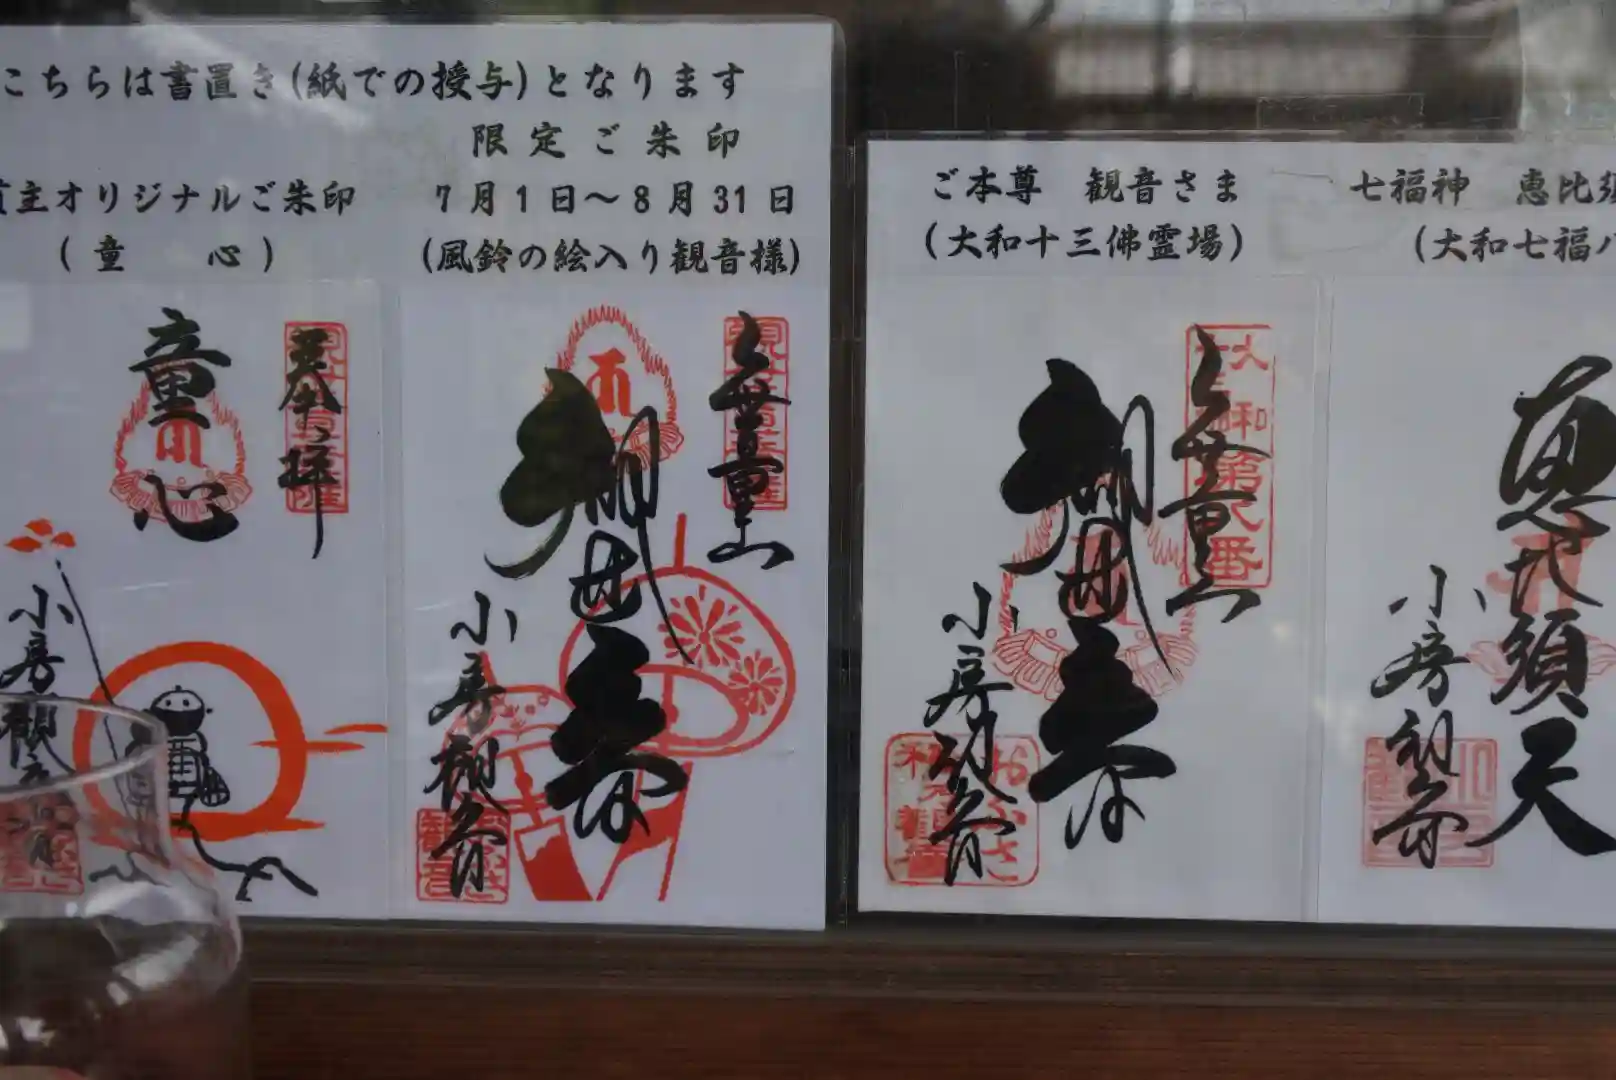 こちらは書置き(紙での授与)となります
限定ご朱印
主オリジナルご朱印
7月1日～8月31日
(童 心)
(風鈴の絵入り観音様)
奉拝
童心
小房観音
無量山
小房観音
ご本尊 観音さま
(大和十三佛霊場)
無量山
小房観音
七福神 恵比須
(大和七福八
恵比須天
小房観音